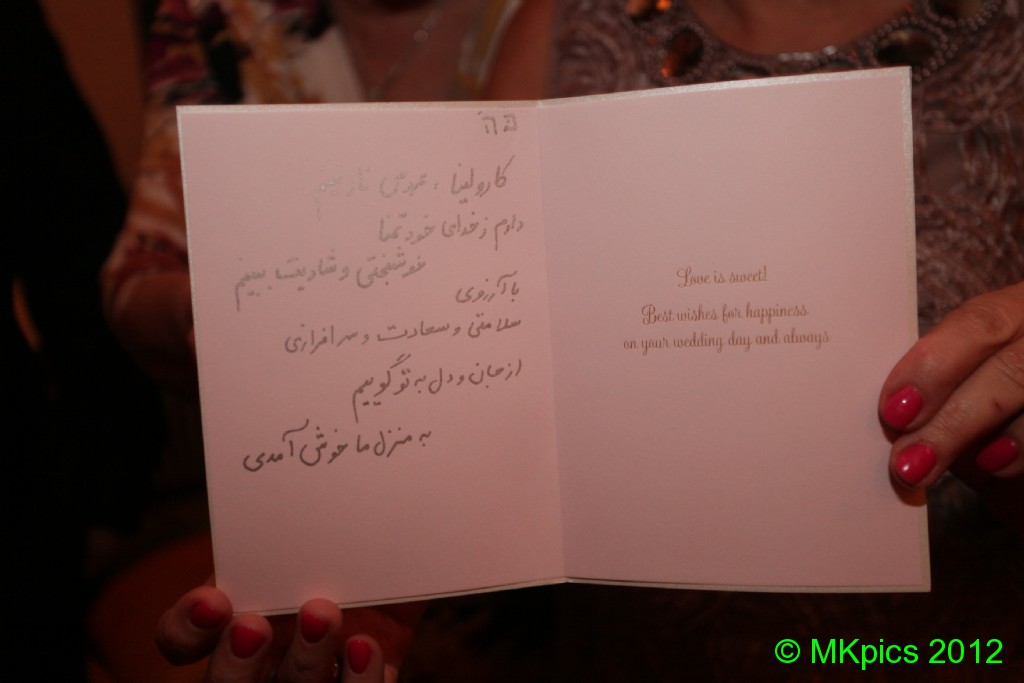 כ״ה
کارولینا ، عروس نازنینم
دارم ز خدای خود تمنا
خوشبختی و شادیت ببینم
با آرزوی
سلامتی و سعادت و سرافرازی
از جان و دل به تو گوییم
به منزل ما خوش آمدی
Love is sweet!
Best wishes for happiness
on your wedding day and always
© MKpics 2012